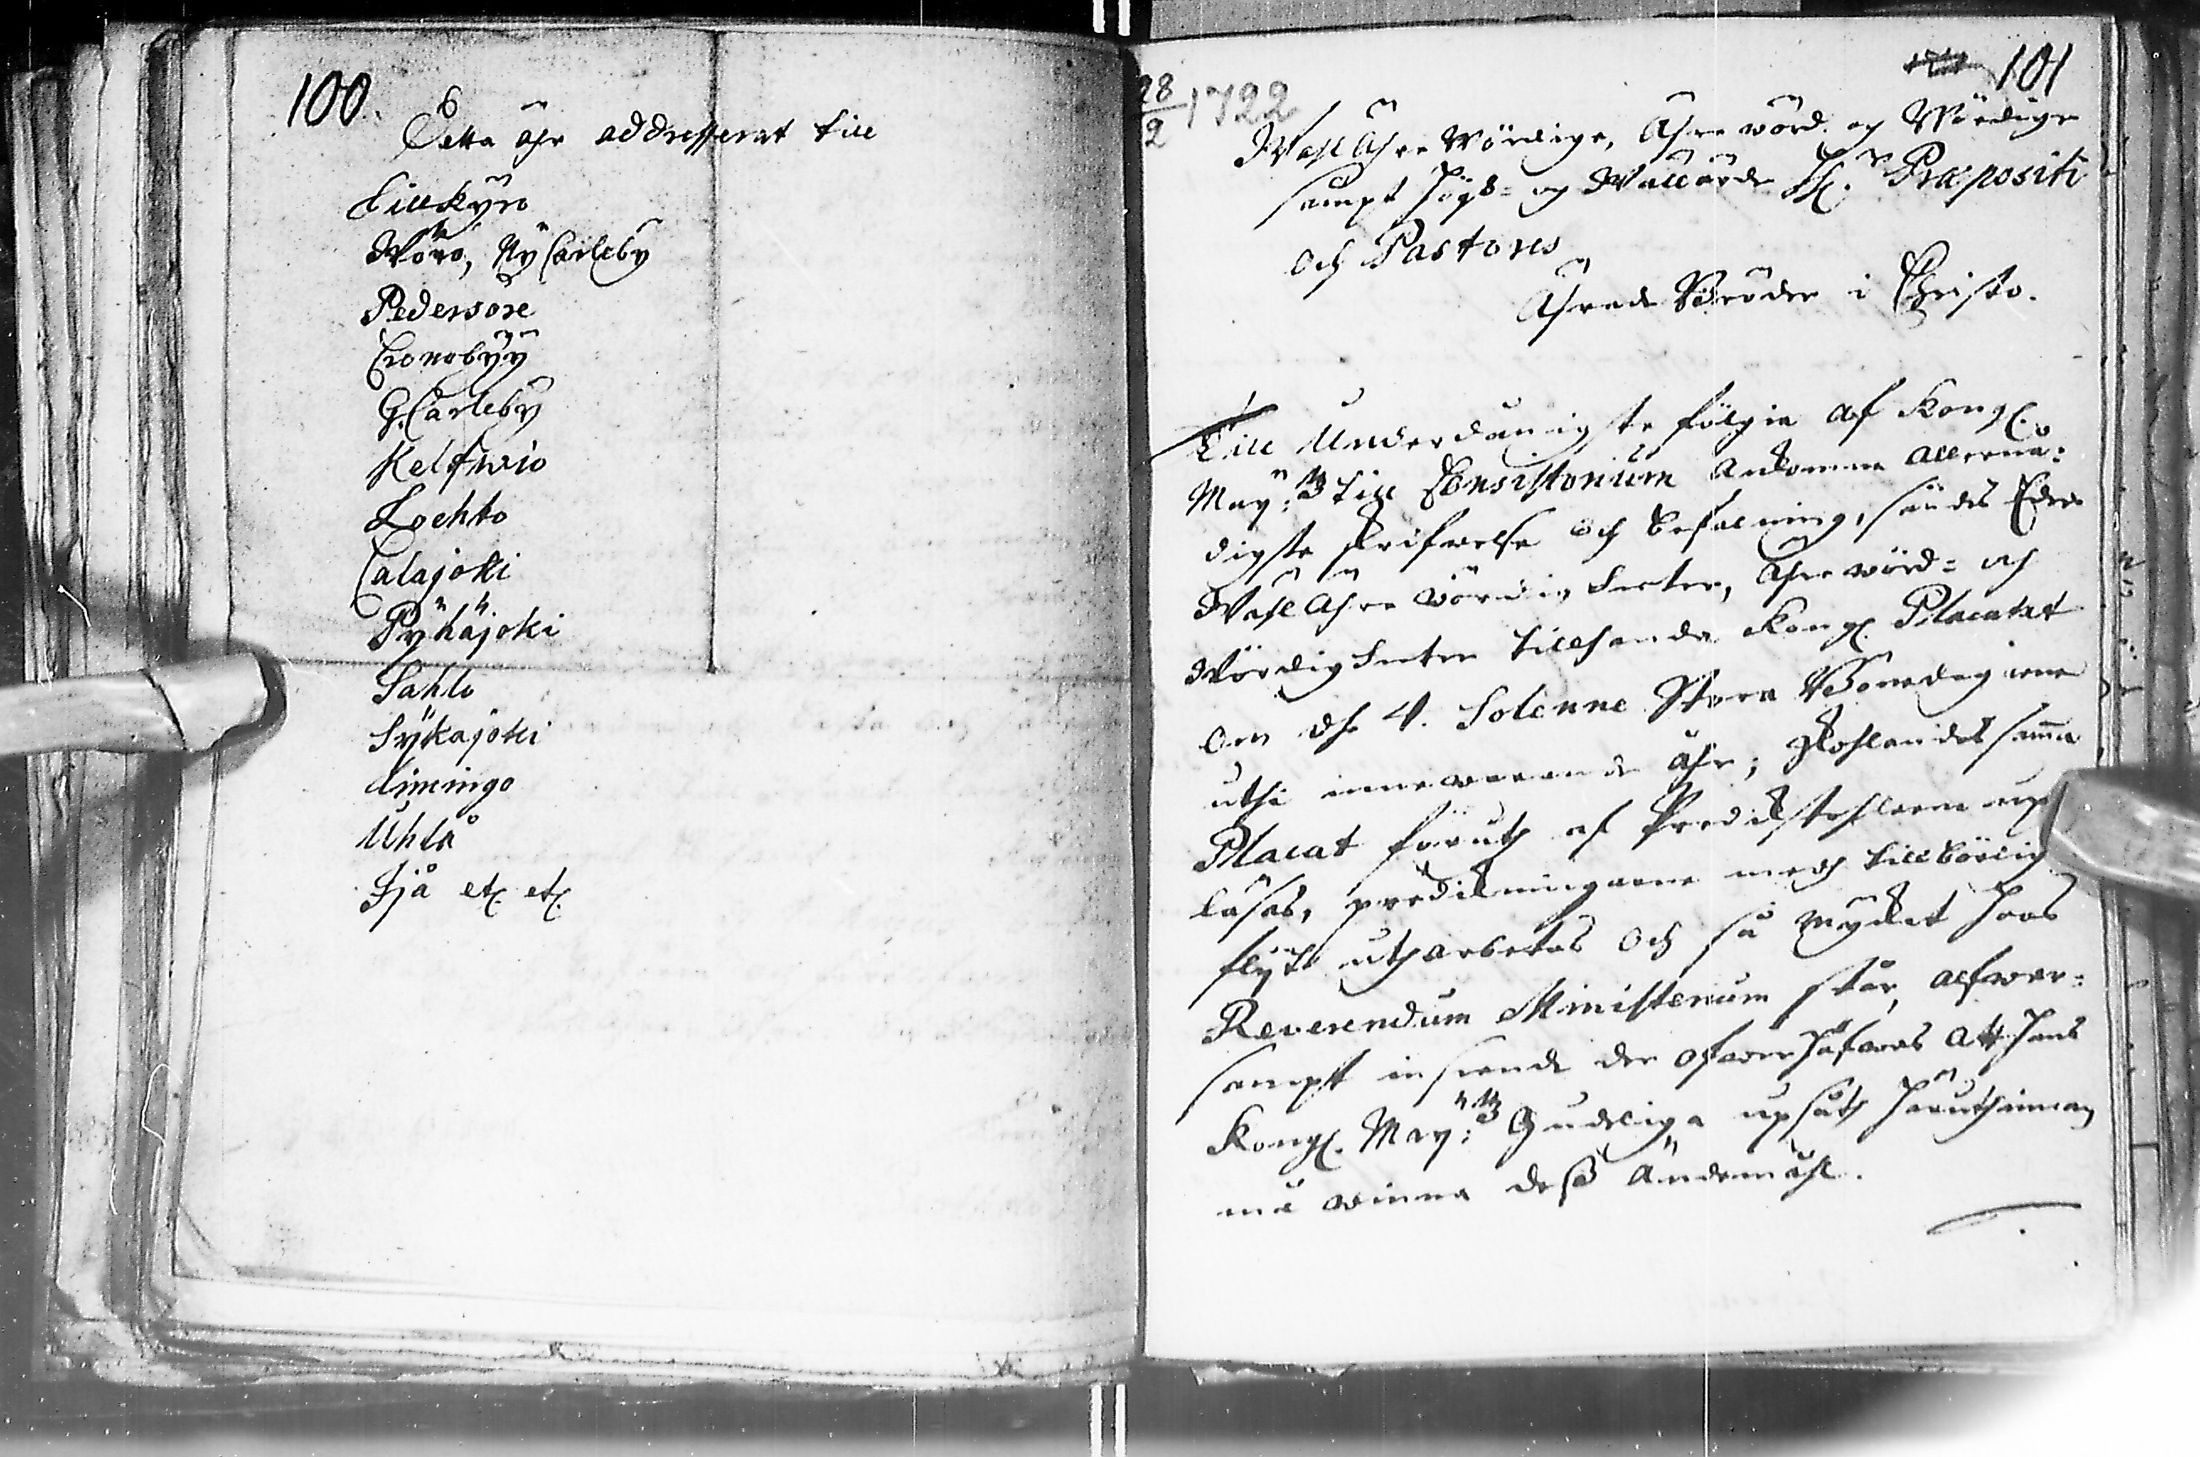 100.
Detta ähr addresserat till
Lillkyro
Wörå, Ny Carleby
Pedersöre
Cronobyÿ
G. Carleby
Kelfwio
Lochto
Calajoki
Pyhäjoki
Sahlo
Sÿkajoki
Limingo
Uhlå
Ijå etc. etc.
28/2 1722
101
WälÄhre Wördige, Ähre wörd. og Wördige
sampt Högt= og Wällärde Hr. Præpositi
och Pastores
Ährade Bröder i Christo.
Till Underdånigste fölgie af Kongl.
May:ttz till Consistorium ankomne allernå=
digste skrifwelse och befalning, sändes Eder
WälÄhre Wördigheeter, Ährewörd= och
Wördigheeter tillhanda Kongl. Placatet
om de 4. Solenne Stora Bönedagarne
uthi innewarande åhr; skohlandes samma
Placat föruth af Predikstohlarne up
läsas, predikningarne med tillbörlig
flijt utharbetas och så mycket hoos
Reverendum Ministerium står, alfwar=
sampt inseende der öfwer hafwas att hans
Kongl. May:ttz Gudeliga upsåth häruthinnan
må winna dess ändemåhl.